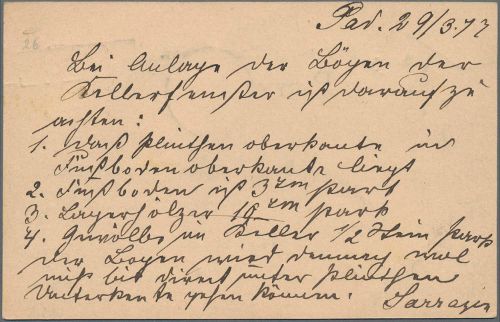 26
Pad. 29/3.77
Bei Anlage der Bögen der
Kellerfenster ist darauf zu
achten:
1. daß Plinthenoberkante in
Fußbodenoberkante liegt
2. Fußboden ist 3 zm stark
3. Lagerhölzer 16 zm stark
4. Gewölbe im Keller 1/2 Stein stark
der Bogen wird demnach wol
nicht bis direct unter Plinthen
Unterkante gehen können.
Sarrazin